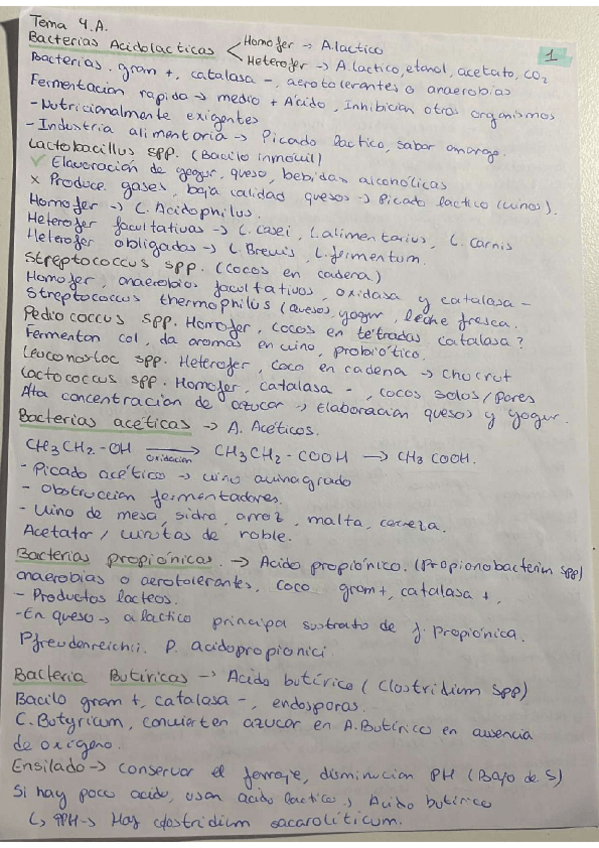 Tema 4.A.
1
Bacterias Acidolacticas < Homofer → A.lactico
Heterofer → A.lactico, etanol, acetato, CO2
Bacterias, gram +, catalasa -, aerotolerantes o anaerobias
Fermentacion rapida → medio + Ácido, Inhibicion otros organismos
- Nutricionalmente exigentes
- Industria alimentaria → Picado lactico, sabor amargo.
Lactobacillus spp. (Bacilo inmóvil)
✓ Elavoración de yogur, queso, bebidas alcohólicas
x Produce gases, baja calidad quesos → Picado láctico (vinos).
Homofer → L. Acidophilus.
Heterofer facultativas → L. casei, L. alimentarius, L. carnis
Heterofer obligadas → L. Brevis, L. fermentum.
Streptococcus spp. (cocos en cadena)
Homofer, anaerobios facultativos, oxidasa y catalasa -
Streptococcus thermophilus (queso, yogur, leche fresca.
Pediococcus spp. Homofer, cocos en tétradas catalasa ?
Fermenton col, da aromas en vino, probiótico.
Leuconostoc spp. Heterofer, coco en cadena → chucrut
Lactococcus spp. Homofer, catalasa -, cocos solos/pares
Alta concentración de azucar → Elaboración quesos y yogur.
Bacterias acéticas → A. Acéticos.
CH3CH2-OH → CH3CH2-COOH → CH3COOH.
oxidacion
- Picado acético → vino avinagrado
- Obstruccion fermentadores.
- Vino de mesa, sidra, arroz, malta, cerveza.
Acetator / virutas de roble.
Bacterias propiónicas. → Acido propiónico. (Propionobacterim spp)
anaerobias o aerotolerantes, coco gram+, catalasa +.
- Productos lacteos.
- En queso → a lactico principa sustrato de f. Propiónica.
P.freudenreichii. P. acidopropionici
Bacteria Butíricas → Acido butírico (Clostridium spp)
Bacilo gram +, catalasa -, endosporas.
C. Butyricum, convierten azucar en A.Butírico en ausencia
de oxígeno.
Ensilado → conservar el forraje, disminucion PH (Bajo de 5)
Si hay poco acido, usan acido lactico → Acido butírico
↳ ↑PH → Hay clostridium sacaroliticum.